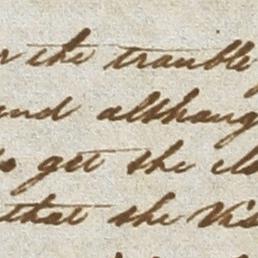 the trouble
and althoug
to get the
that the Vis